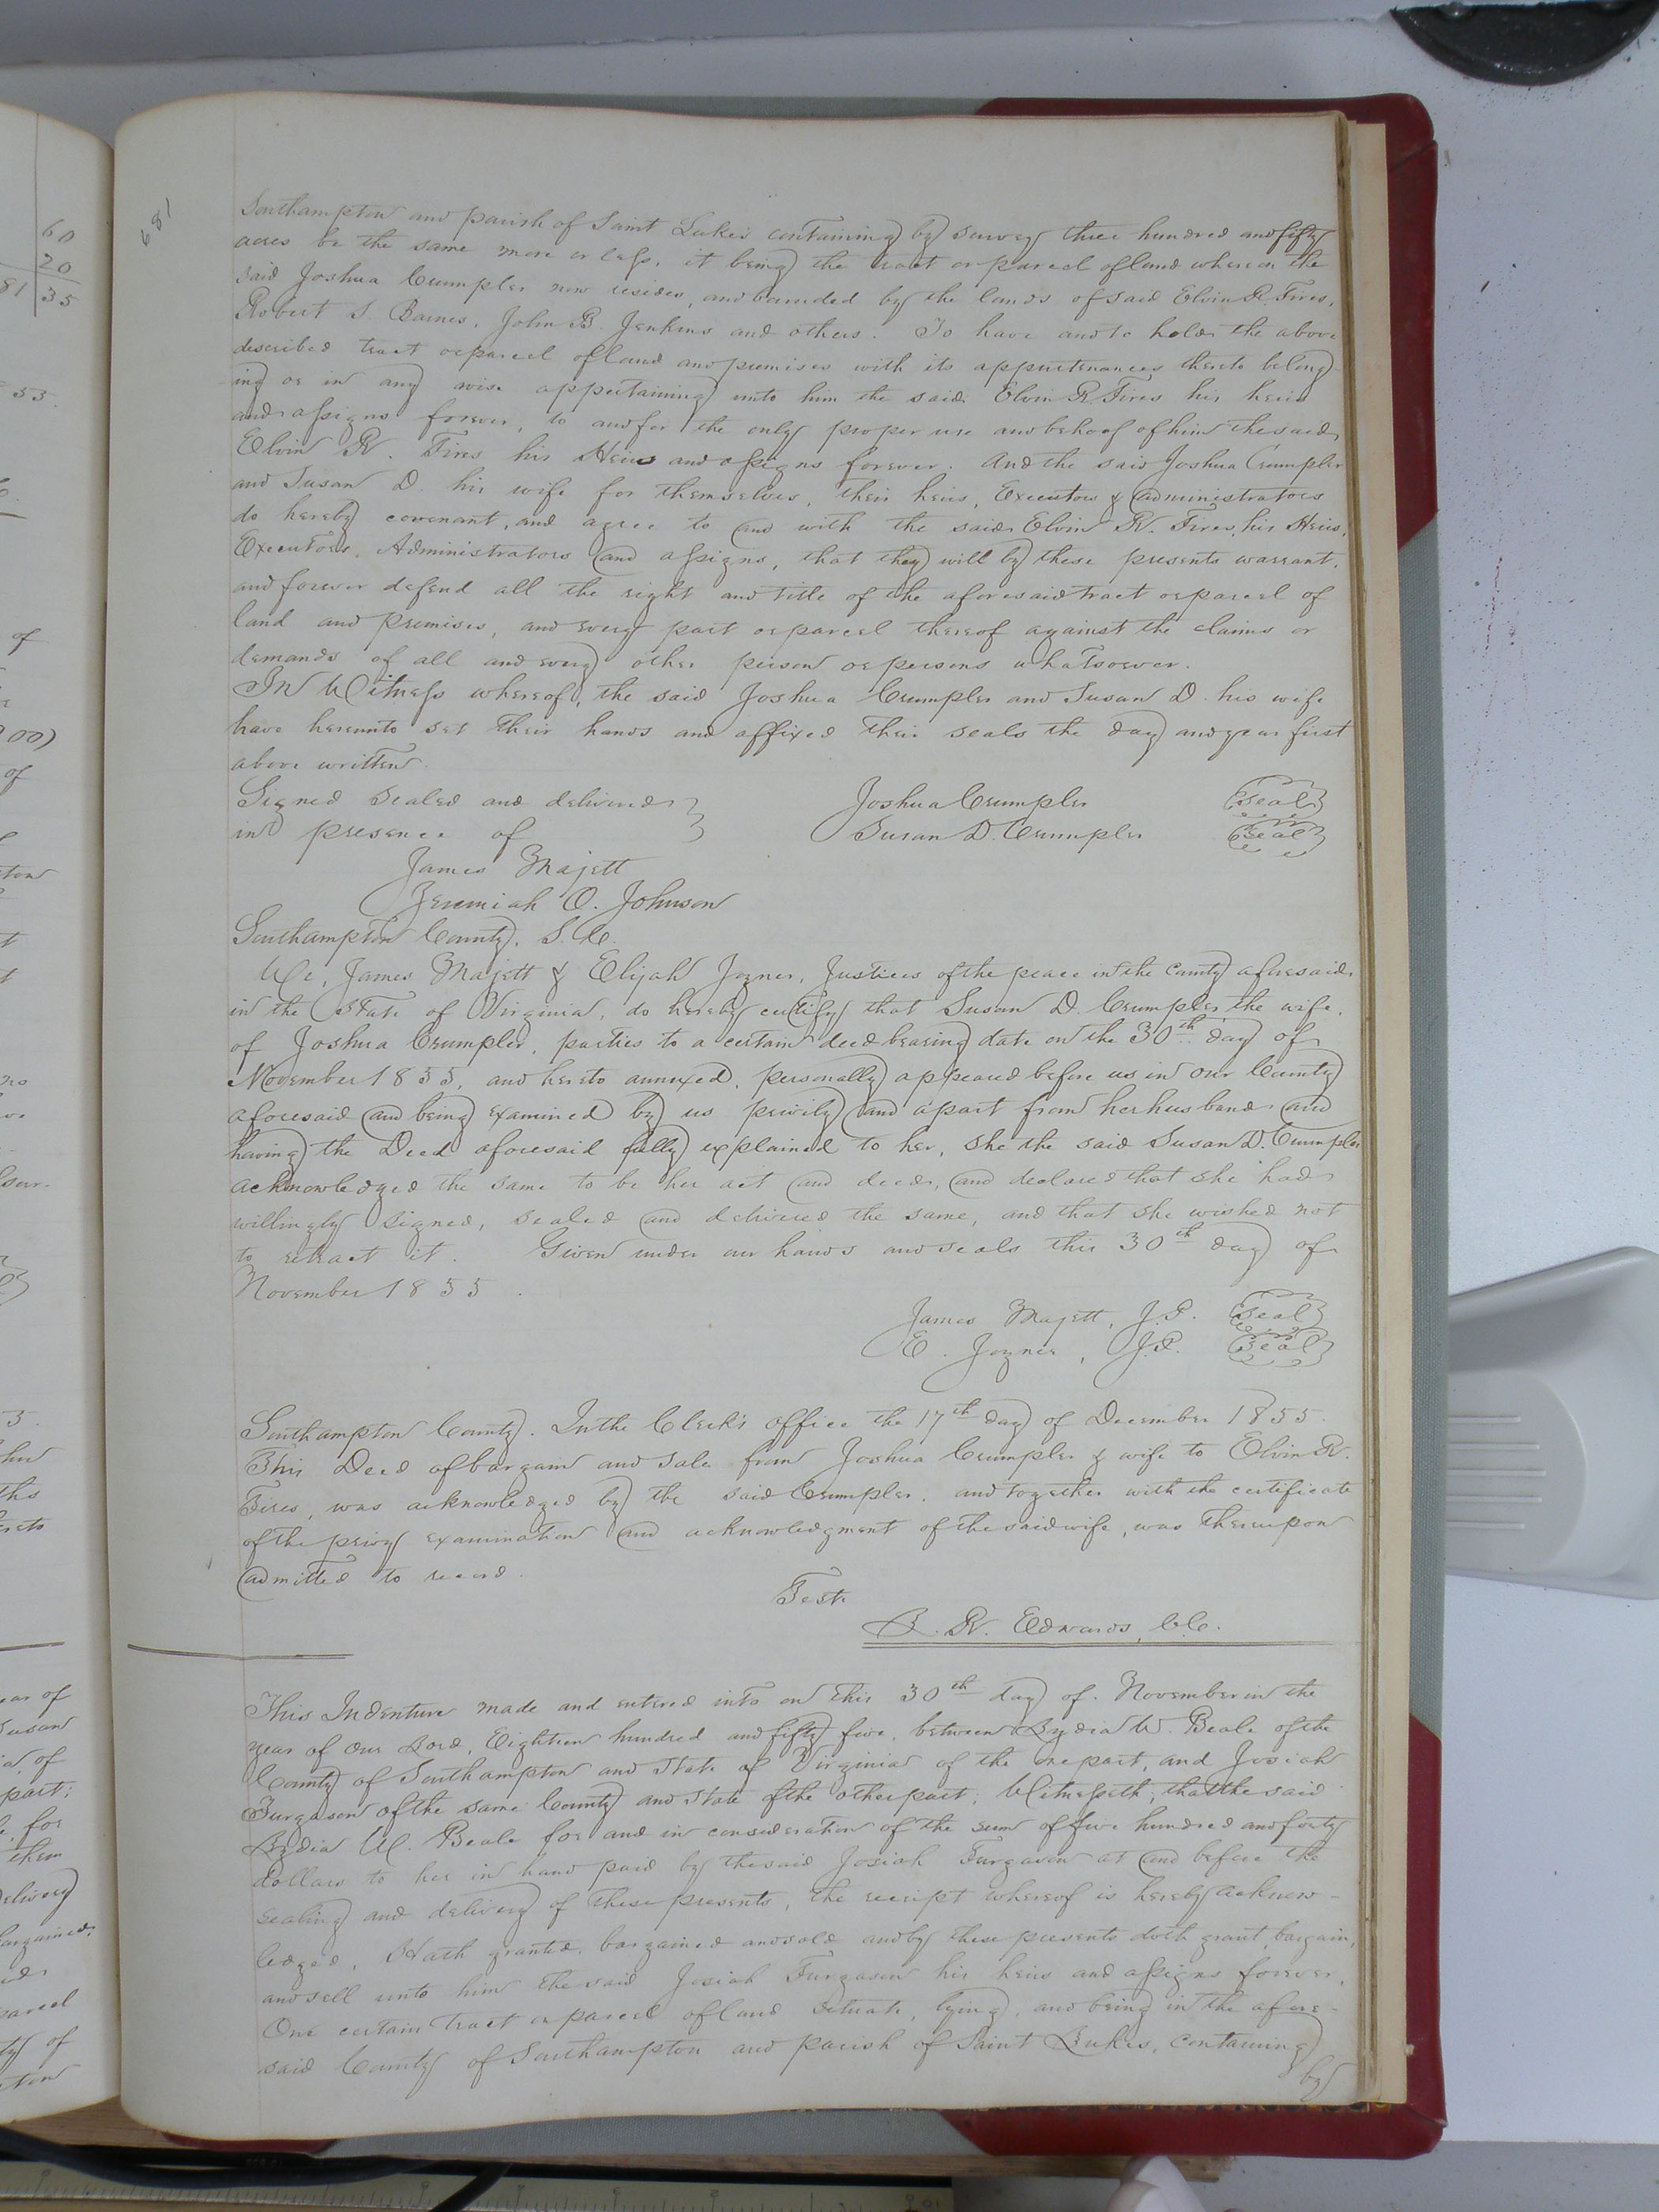 681
Southampton and parish of Saint Luke's containing by survey three hundred and fifty
acres be the same more or less, it being the tract or parcel of land whereon the
said Joshua Crumpler now resides, and bounded by the lands of said Elvin R. Fires,
Robert S. Barnes, John B. Jenkins and others. To have and to hold the above
described tract or parcel of land and premises with its appurtenances thereto belong
ing or in any wise appertaining unto him the said Elvin R Fires his heirs
and assigns forever, to and for the only proper use and behoof of him the said
Elvin R. Fires his Heirs and assigns forever. And the said Joshua Crumpler
and Susan D. his wife for themselves, their heirs, Executors & administrators
do hereby covenant, and agree to and with the said Elvin R. Fires, his Heirs,
Executors, Administrators and assigns, that they will by these presents warrant,
and forever defend all the right and title of the aforesaid tract or parcel of
land and premises, and every part or parcel thereof against the claims or
demands of all and every other person or persons whatsoever.
In Witness whereof, the said Joshua Crumpler and Susan D. his wife
have hereunto set their hands and affixed their seals the day and year first
above written.
Signed Sealed and delivered } Joshua Crumpler {Seal}
in presence of } Susan D. Crumpler {Seal}
James Majett
Jeremiah O. Johnson
Southampton County, S. Ct.
We, James Majett & Elijah Joyner, Justices of the peace in the County aforesaid
in the State of Virginia, do hereby certify that Susan D. Crumpler the wife,
of Joshua Crumpler, parties to a certain deed bearing date on the 30th day of
November 1855, and hereto annexed, personally appeared before us in our County
aforesaid and being examined by us privily and apart from her husband and
having the Deed aforesaid fully explained to her, she the said Susan D. Crumpler
acknowledged the same to be her act and deed, and declared that she had
willingly signed, sealed and delivered the same, and that she wished not
to retract it. Given under our hands and seals this 30th day of
November 1855.
James Majett, J.P. {Seal}
E. Joyner, J.P. {Seal}
Southampton County. In the Clerk's office the 17th day of December 1855.
This Deed of bargain and sale from Joshua Crumpler & wife to Elvin R.
Fires, was acknowledged by the said Crumpler, and together with the certificate
of the privy examination and acknowledgment of the said wife, was thereupon
admitted to record.
Teste
L. R. Edwards, C.C.
This Indenture made and entered into on this 30th day of November in the
year of our Lord, Eighteen hundred and fifty five, between Lydia W. Beale of the
County of Southampton and State of Virginia of the one part, and Josiah
Furgason of the same County and State of the other part, Witnesseth, that the said
Lydia W. Beale for and in consideration of the sum of five hundred and forty
dollars to her in hand paid by the said Josiah Furgason at and before the
sealing and delivery of these presents, the receipt whereof is hereby acknow-
ledged, Hath granted, bargained and sold and by these presents doth grant, bargain,
and sell unto him the said Josiah Furgason his heirs and assigns forever,
One certain tract or parcel of land situate, lying, and being in the afore-
said County of Southampton and parish of Saint Lukes, containing
by